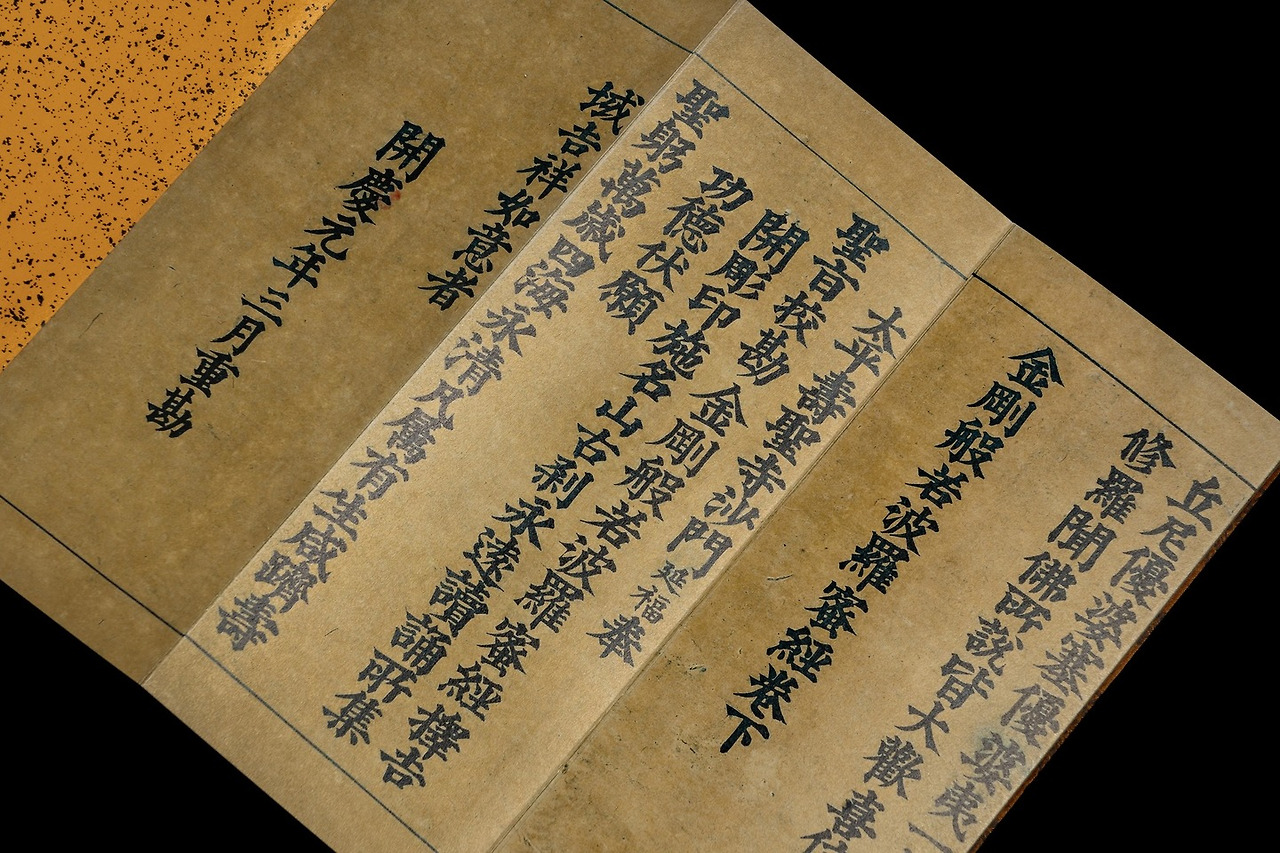 丘尼優婆塞優婆夷一
修羅聞佛所說皆大歡喜信
金剛般若波羅蜜經卷下
太平壽聖寺沙門延福奉
聖旨校勘金剛般若波羅蜜經擇吉
開彫印施名山古刹永遠讀誦所集
功德伏願
聖躬萬歲四海永清凡屬有生咸躋壽
域吉祥如意者
開慶元年三月重勘